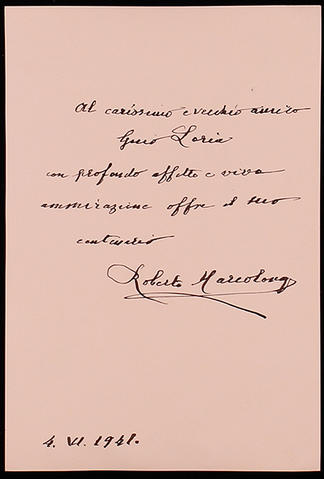 Al carissimo e vecchio amico
Gino Loria
con profondo affetto e viva
ammirazione offre il suo
Roberto Marcolongo
4. VI. 1941.